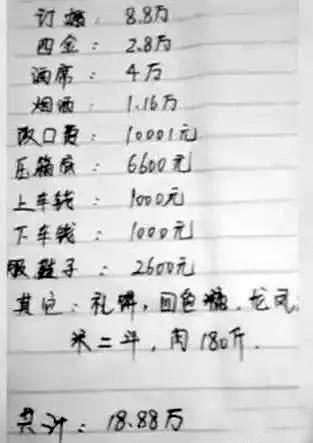 订婚：8.8万
四金：2.8万
酒席：4万
烟酒：1.16万
改口费：10001元
压箱底：6600元
上车钱：1000元
下车钱：1000元
鞋子：2600元
其它：礼饼，回色糖，龙凤
米二斗，肉180斤．
共计：18.88万